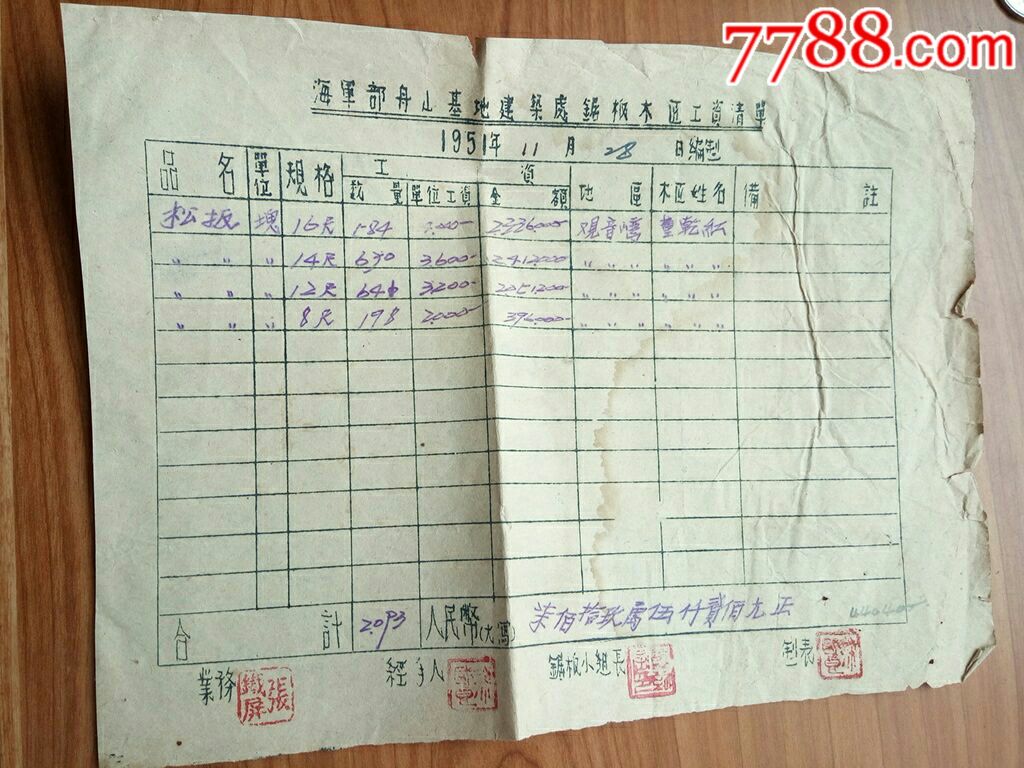 7788.com
海軍部舟山基地建築處鋸板木匠工資清單
1951年 11 月 28 日編製
品名 單位 規格 工資 地區 木匠姓名 備註
数量 單位工資 金額
松板 塊 16尺 584 2336000 觀音橋
〃 〃 〃 14尺 670 3600 2412000 〃 〃 〃 〃 〃 〃
〃 〃 〃 12尺 641 3200 2051200 〃 〃 〃 〃 〃 〃
〃 〃 〃 8尺 198 2000 396000 〃 〃 〃 〃 〃 〃
合計 2093 人民幣(大寫) 柒佰拾玖萬伍仟貳佰元正
業務 張鐵屏 經手人 鋸板小組長 製表